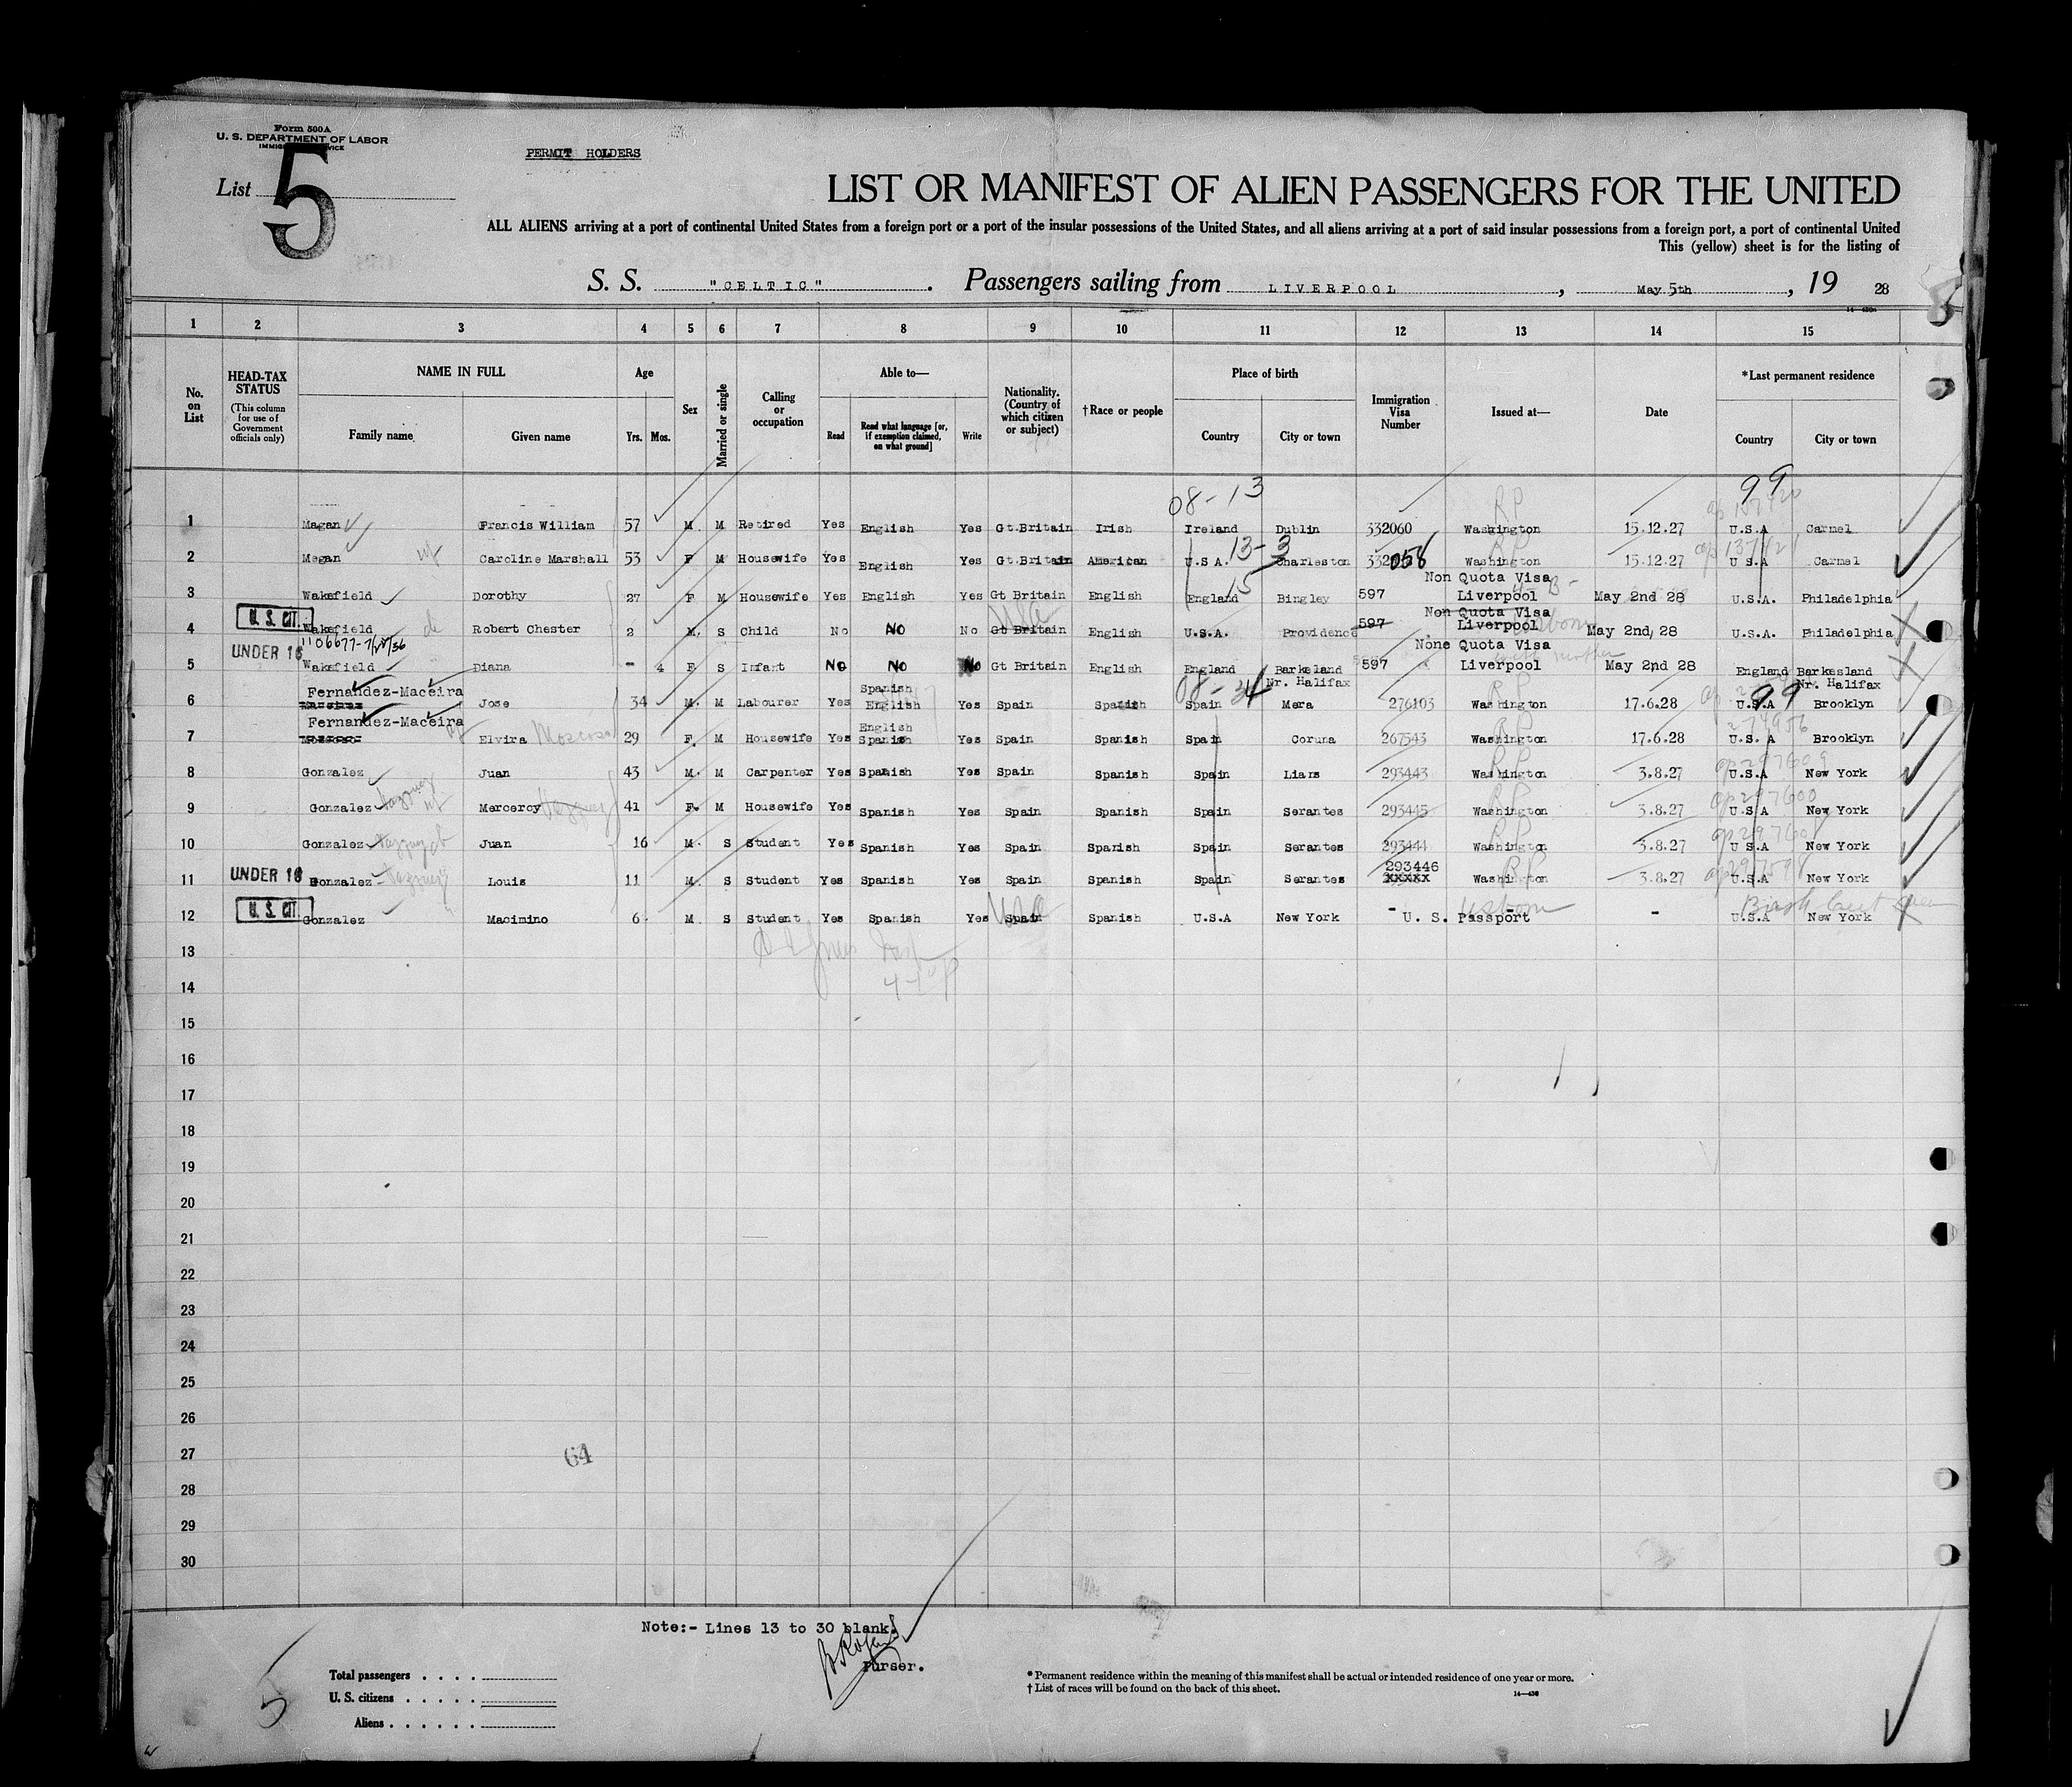 Form 500A
U. S. DEPARTMENT OF LABOR
PERMIT HOLDERS
List 5
LIST OR MANIFEST OF ALIEN PASSENGERS FOR THE UNITED
ALL ALIENS arriving at a port of continental United States from a foreign port or a port of the insular possessions of the United States, and all aliens arriving at a port of said insular possessions from a foreign port, a port of continental United
This (yellow) sheet is for the listing of
S. S. "CELTIC". Passengers sailing from LIVERPOOL, May 5th, 19 28
1 2 3 4 5 6 7 8 9 10 11 12 13 14 15
No. on List
HEAD-TAX STATUS (This column for use of Government officials only)
NAME IN FULL Family name Given name
Age Yrs. Mos.
Sex
Married or single
Calling or occupation
Able to— Read Read what language [or, if exemption claimed, on what ground] Write
Nationality. (Country of which citizen or subject)
†Race or people
Place of birth Country City or town
Immigration Visa Number
Issued at—
Date
*Last permanent residence Country City or town
08-13 99
1 Magan Francis William 57 M. M Retired Yes English Yes Gt.Britain Irish Ireland Dublin 332060 Washington 15.12.27 U.S.A Carmel
13-3
2 Magan Caroline Marshall 53 F M Housewife Yes English Yes Gt.Britain American U.S.A. Charleston 332058 Washington 15.12.27 U S A Carmel
Non Quota Visa
3 Wakefield Dorothy 27 F M Housewife Yes English Yes Gt Britain English England 15 Bingley 597 Liverpool May 2nd 28 U.S.A. Philadelphia
U. S. CIT. Non Quota Visa
4 Wakefield Robert Chester 2 M. S Child No No No Gt Britain English U.S.A. Providence 597 Liverpool May 2nd, 28 U.S.A. Philadelphia
UNDER 16 None Quota Visa
5 Wakefield Diana - 4 F S Infant No No No Gt Britain English England Barksland Nr. Halifax 597 Liverpool May 2nd 28 England Barkesland Nr. Halifax
Fernandez-Maceira Spanish 08-34 99
6 Jose 34 M. M Labourer Yes English Yes Spain Spanish Spain Mera 276103 Washington 17.6.28 U.S.A Brooklyn
Fernandez-Maceira English
7 Elvira Moscoso 29 F. M Housewife Yes Spanish Yes Spain Spanish Spain Coruna 267543 Washington 17.6.28 U.S. A Brooklyn
8 Gonzalez Juan 43 M. M Carpenter Yes Spanish Yes Spain Spanish Spain Liars 293443 Washington 3.8.27 U.S.A New York
9 Gonzalez Merceroy 41 F. M Housewife Yes Spanish Yes Spain Spanish Spain Serantes 293445 Washington 3.8.27 U.S.A New York
10 Gonzalez Juan 16 M. S Student Yes Spanish Yes Spain Spanish Spain Serantes 293444 Washington 3.8.27 U S A New York
UNDER 16 293446
11 Gonzalez Louis 11 M. S Student Yes Spanish Yes Spain Spanish Spain Serantes XXXXX Washington 3.8.27 U.S.A New York
U. S. CIT.
12 Gonzalez Macimino 6 M S Student Yes Spanish Yes Spain Spanish U.S.A New York - U. S. Passport - U.S.A New York
13
14
15
16
17
18
19
20
21
22
23
24
25
26
27 64
28
29
30
Note:- Lines 13 to 30 blank.
Purser.
Total passengers . . . .
U. S. citizens . . . . .
Aliens . . . . . .
5
* Permanent residence within the meaning of this manifest shall be actual or intended residence of one year or more.
† List of races will be found on the back of this sheet.